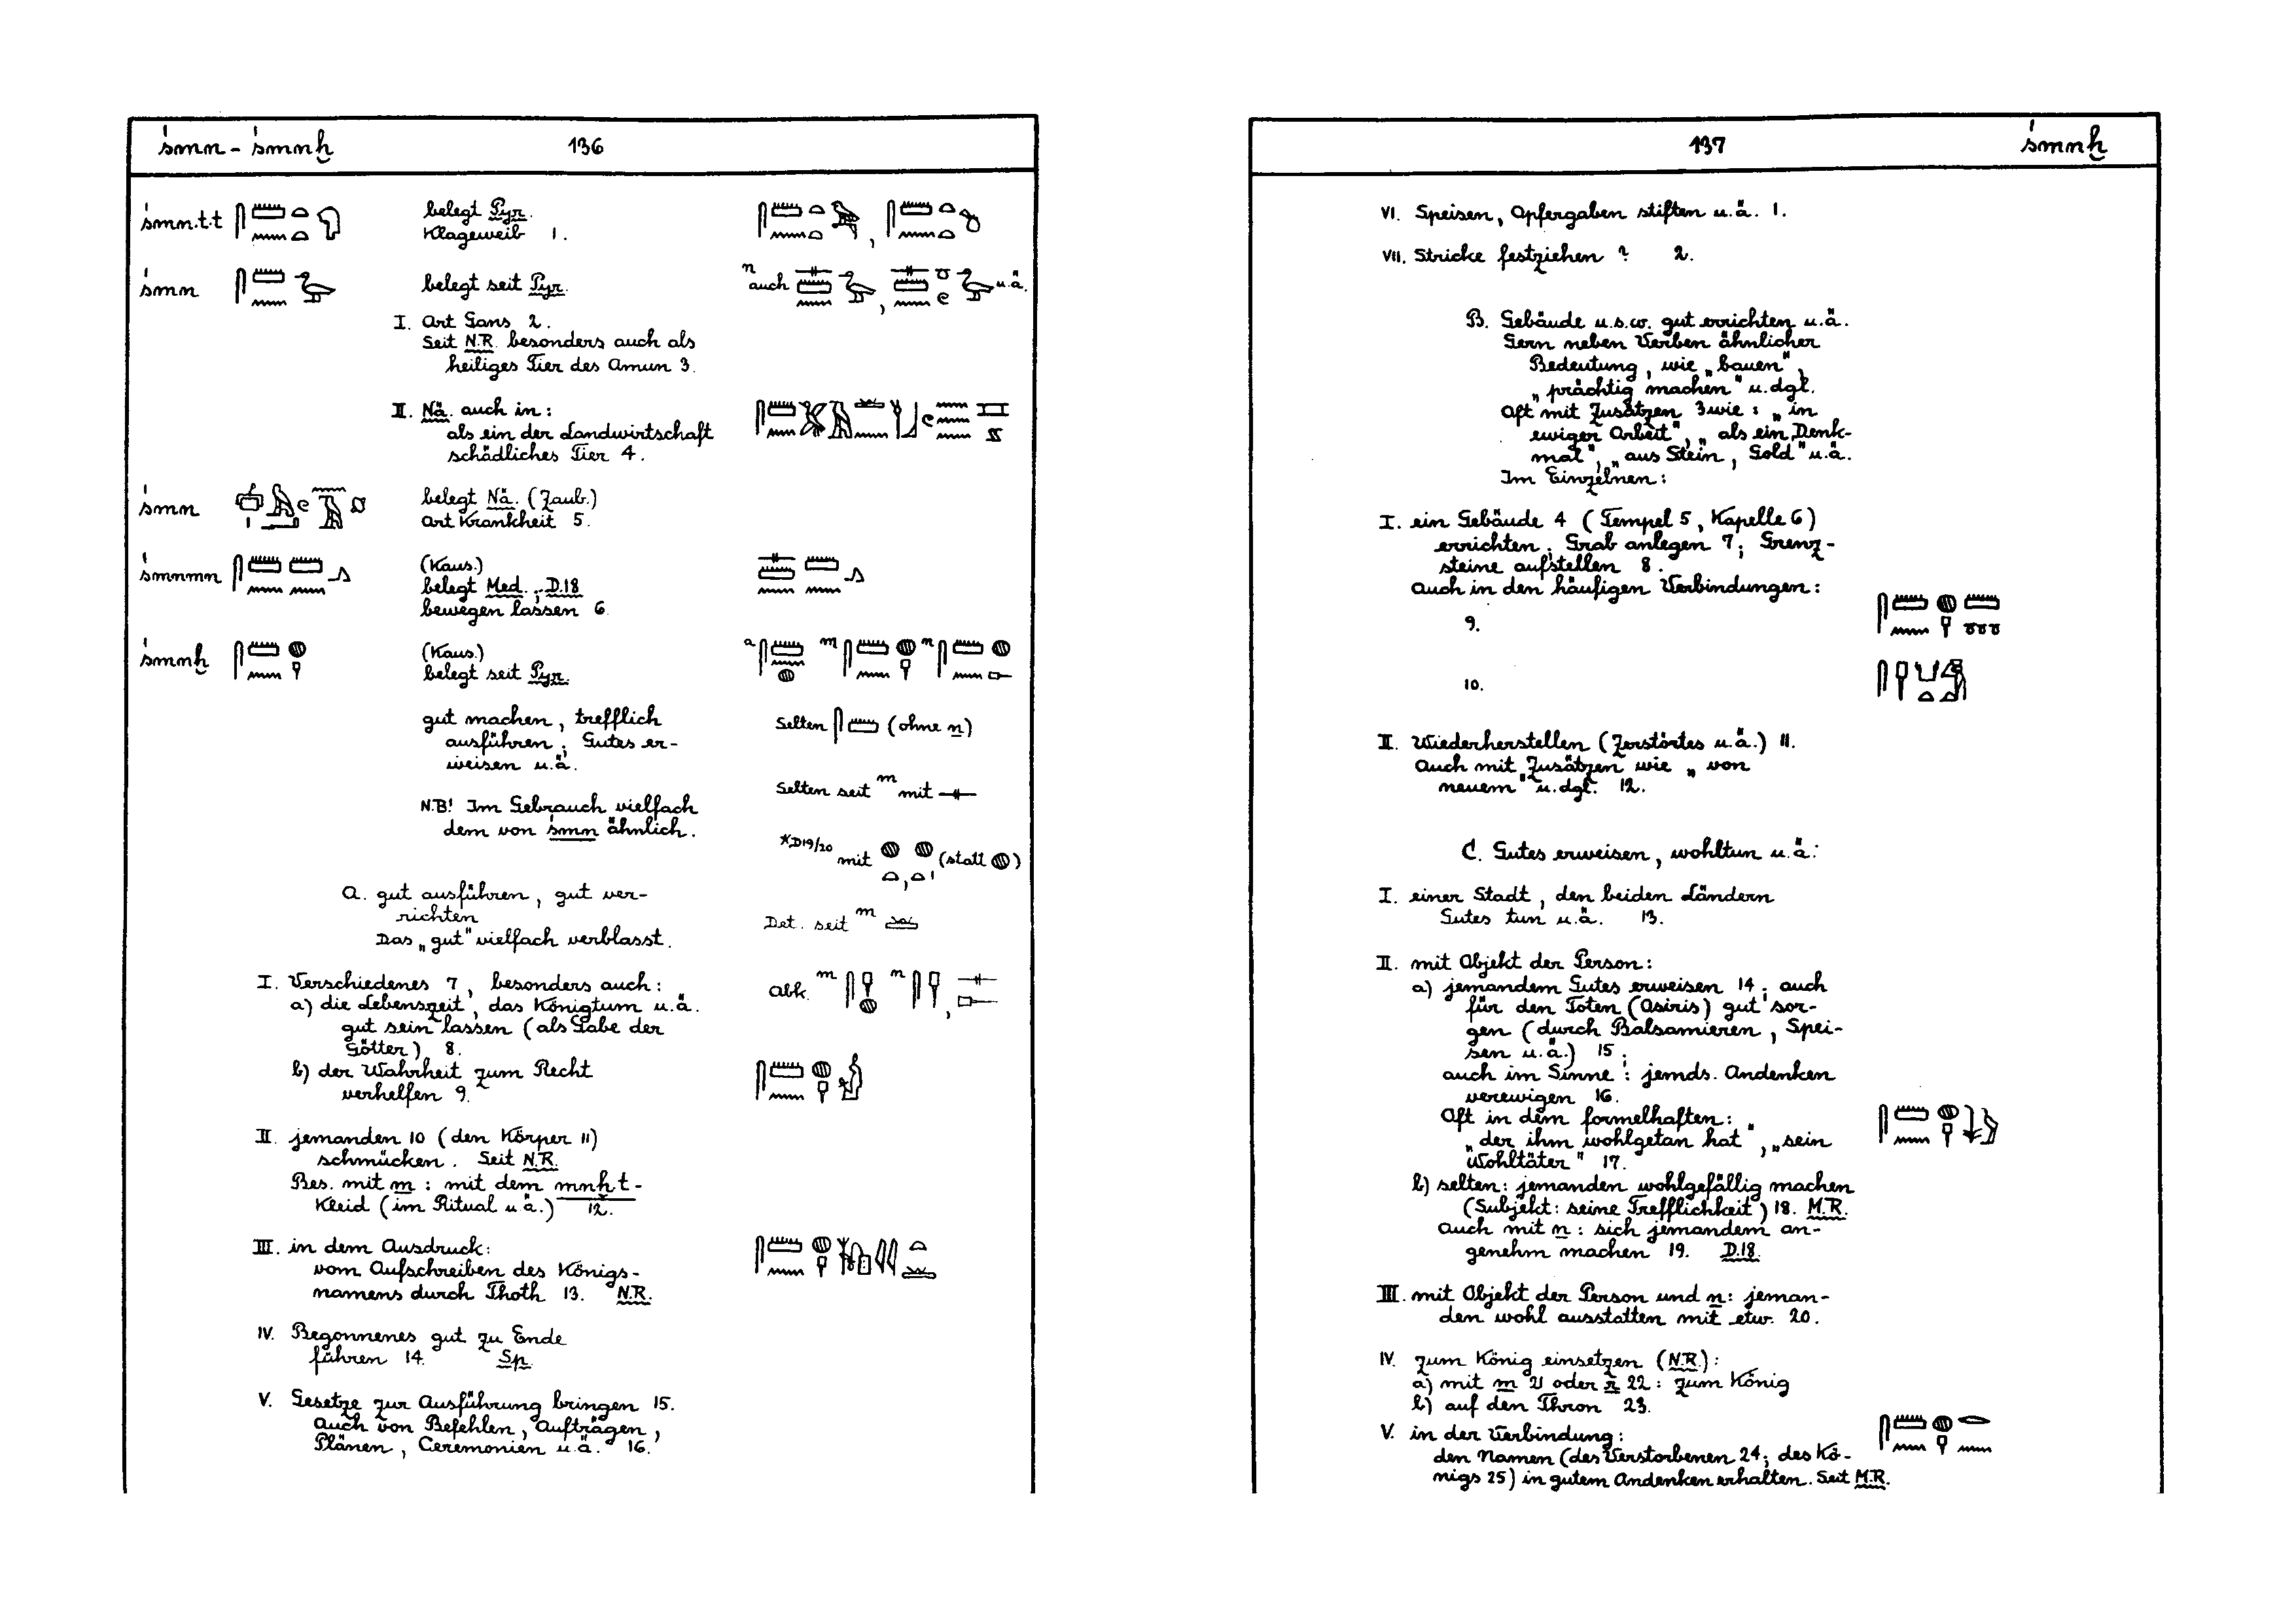 śmn - śmnḫ 136
śmn.t.t belegt Pyr.
Klageweib 1.
śmn belegt seit Pyr. n auch , u.ä.
I. Art Gans 2.
Seit N.R. besonders auch als
heiliges Tier des Amun 3.
II. Nä. auch in:
als ein der Landwirtschaft
schädliches Tier 4.
śmn belegt Nä. (Zaub.)
Art Krankheit 5.
śmnmn (Kaus.)
belegt Med., D.18
bewegen lassen 6.
śmnḫ (Kaus.) a m n
belegt seit Pyr.
gut machen, trefflich
ausführen; Gutes er-
weisen u.ä.
Selten (ohne n)
Selten seit m mit
N.B! Im Gebrauch vielfach
dem von śmn ähnlich.
*D19/20 mit , (statt )
A. gut ausführen, gut ver-
richten
Das „gut" vielfach verblasst.
Det. seit m
I. Verschiedenes 7, besonders auch:
a) die Lebenszeit, das Königtum u.ä.
gut sein lassen (als Gabe der
Götter) 8.
Abk. m n ,
b) der Wahrheit zum Recht
verhelfen 9.
II. jemanden 10 (den Körper 11)
schmücken. Seit N.R.
Bes. mit m: mit dem mnḫ.t-
Kleid (im Ritual u.ä.) 12.
III. in dem Ausdruck:
vom Aufschreiben des Königs-
namens durch Thoth 13. N.R.
IV. Begonnenes gut zu Ende
führen 14. Sp.
V. Gesetze zur Ausführung bringen 15.
Auch von Befehlen, Aufträgen,
Plänen, Ceremonien u.ä. 16.
137 śmnḫ
VI. Speisen, Opfergaben stiften u.ä. 1.
VII. Stricke festziehen ? 2.
B. Gebäude u.s.w. gut errichten u.ä.
Gern neben Verben ähnlicher
Bedeutung, wie „bauen",
„prächtig machen" u.dgl.
Oft mit Zusätzen 3 wie: „in
ewiger Arbeit", „als ein Denk-
mal", „aus Stein, Gold" u.ä.
Im Einzelnen:
I. ein Gebäude 4 (Tempel 5, Kapelle 6)
errichten; Grab anlegen 7; Grenz-
steine aufstellen 8.
Auch in den häufigen Verbindungen:
9.
10.
II. Wiederherstellen (Zerstörtes u.ä.) 11.
Auch mit Zusätzen wie „von
neuem" u.dgl. 12.
C. Gutes erweisen, wohltun u.ä.:
I. einer Stadt, den beiden Ländern
Gutes tun u.ä. 13.
II. mit Objekt der Person:
a) jemandem Gutes erweisen 14; auch
für den Toten (Osiris) gut sor-
gen (durch Balsamieren, Spei-
sen u.ä.) 15;
auch im Sinne: jemds. Andenken
verewigen 16.
Oft in dem formelhaften:
„der ihm wohlgetan hat", „sein
Wohltäter" 17.
b) selten: jemanden wohlgefällig machen
(Subjekt: seine Trefflichkeit) 18. M.R.
Auch mit n: sich jemandem an-
genehm machen 19. D.18.
III. mit Objekt der Person und n: jeman-
den wohl ausstatten mit etw. 20.
IV. zum König einsetzen (N.R.):
a) mit m 21 oder r 22: zum König
b) auf den Thron 23.
V. in der Verbindung:
den Namen (des Verstorbenen 24; des Kö-
nigs 25) in gutem Andenken erhalten. Seit M.R.